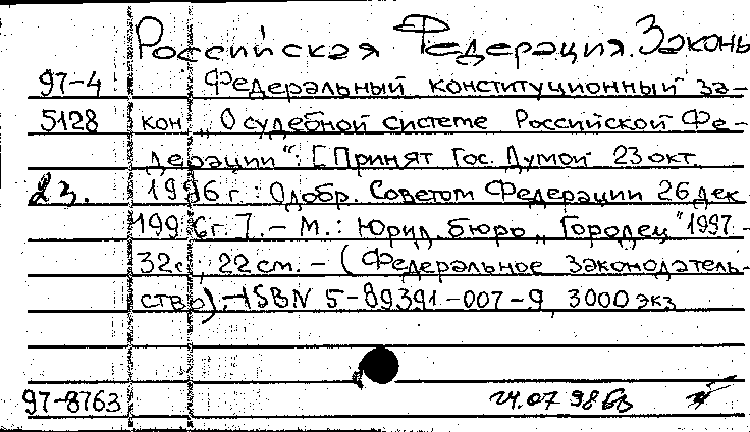 Российская Федерация. Законы
97-4 Федеральный конституционный за-
5128 кон „О судебной системе Российской Фе-
дерации": [Принят Гос. Думой 23 окт.
23. 1996 г.: Одобр. Советом Федерации 26 дек
1996 г.]. - М.: Юрид. бюро „Городец" 1997.-
32 с.; 22 см. - (Федеральное законодатель-
ство). - ISBN 5-89391-007-9, 3000 экз
97-8763 24.07 98